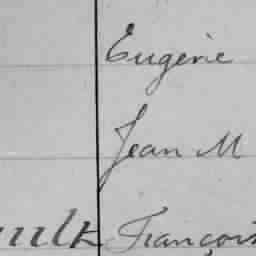 Eugénie
Jean M
François